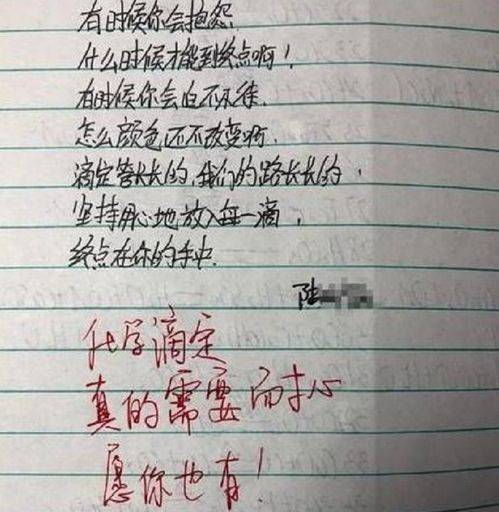 有时候你会抱怨
什么时候才能到终点啊!
有时候你会迫不及待,
怎么颜色还不改变啊.
滴定管长长的,我们的路长长的,
坚持用心地放入每一滴,
终点在你的手中.
陆
化学滴定
真的需要耐心
愿你也有!